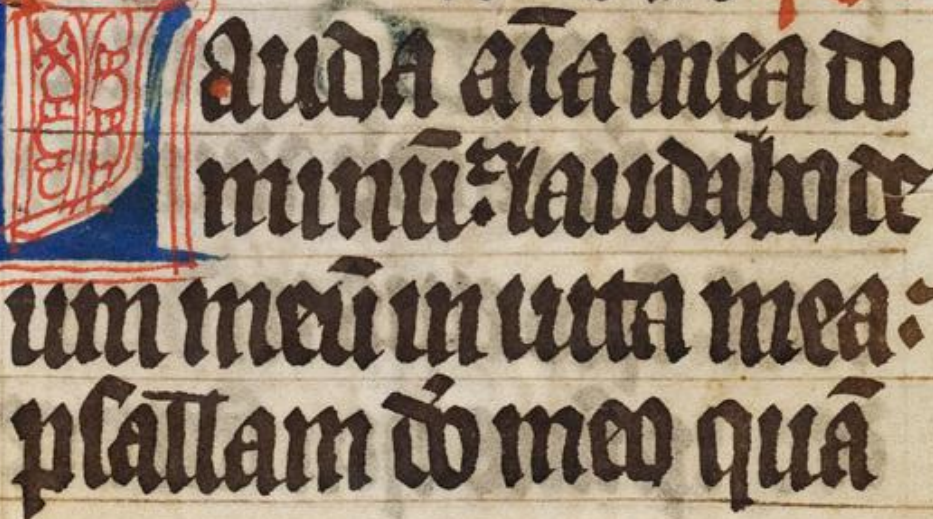 Lauda aīa mea do
minū: laudabo de
um meū in uita mea:
psallam do meo quā